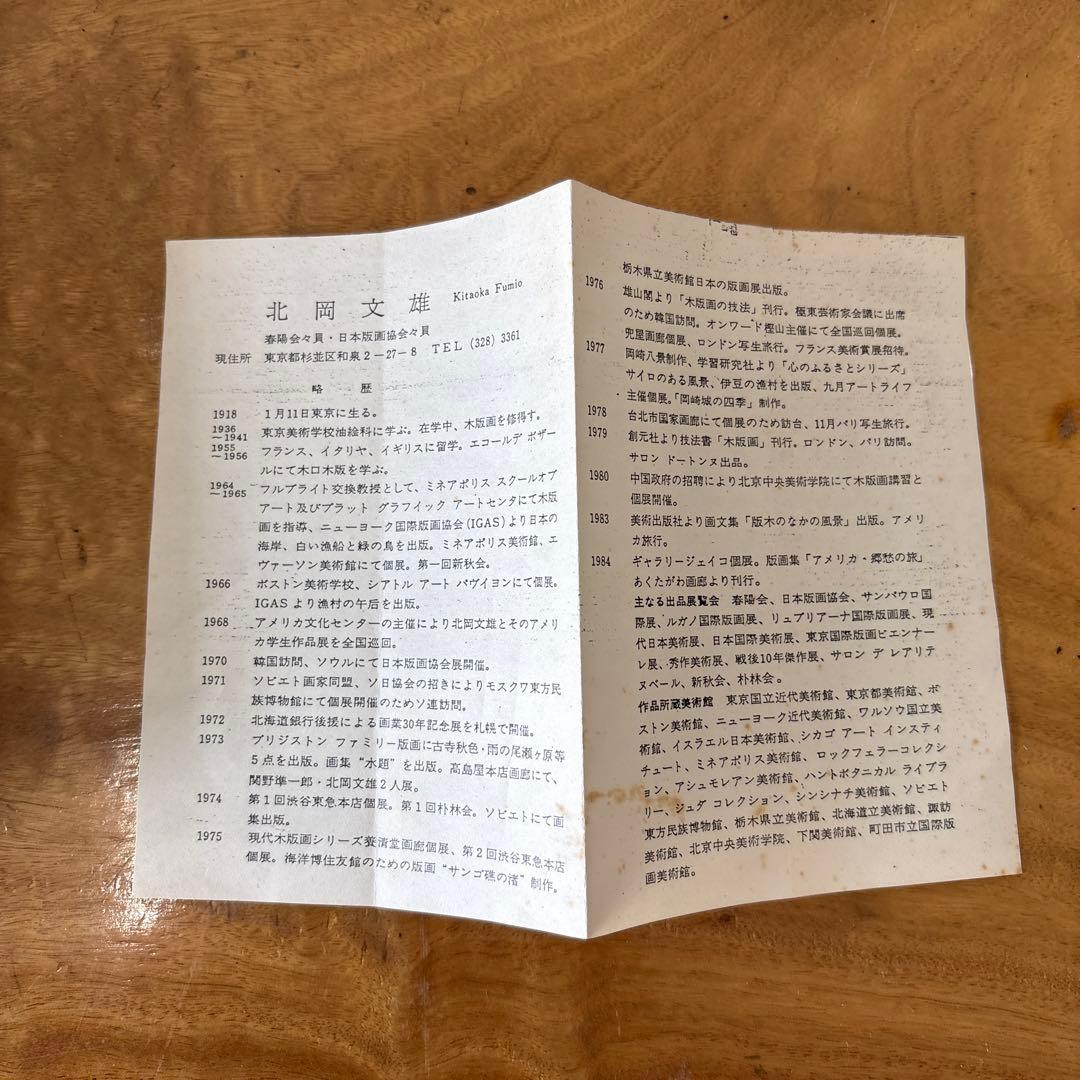 北岡文雄 Kitaoka Fumio
春陽会々員・日本版画協会々員
現住所 東京都杉並区和泉2-27-8 TEL (328) 3361
略歴
1918 1月11日東京に生る。
1936～1941 東京美術学校油絵科に学ぶ。在学中、木版画を修得す。
1955～1956 フランス、イタリヤ、イギリスに留学。エコールデ ボザー
ルにて木口木版を学ぶ。
1964～1965 フルブライト交換教授として、ミネアポリス スクールオブ
アート及びプラット グラフイック アートセンタにて木版
画を指導、ニューヨーク国際版画協会(IGAS)より日本の
海岸、白い漁船と緑の鳥を出版。ミネアポリス美術館、エ
ヴァーソン美術館にて個展。第一回新秋会。
1966 ボストン美術学校、シアトル アート パヴイヨンにて個展。
IGASより漁村の午后を出版。
1968 アメリカ文化センターの主催により北岡文雄とそのアメリ
カ学生作品展を全国巡回。
1970 韓国訪問、ソウルにて日本版画協会展開催。
1971 ソビエト画家同盟、ソ日協会の招きによりモスクワ東方民
族博物館にて個展開催のためソ連訪問。
1972 北海道銀行後援による画業30年記念展を札幌で開催。
1973 ブリジストン ファミリー版画に古寺秋色・雨の尾瀬ヶ原等
5点を出版。画集“水題”を出版。高島屋本店画廊にて、
関野準一郎・北岡文雄2人展。
1974 第1回渋谷東急本店個展。第1回朴林会。ソビエトにて画
集出版。
1975 現代木版画シリーズ養清堂画廊個展、第2回渋谷東急本店
個展。海洋博住友館のための版画“サンゴ礁の渚”制作。
栃木県立美術館日本の版画展出版。
1976 雄山閣より「木版画の技法」刊行。極東芸術家会議に出席
のため韓国訪問。オンワード樫山主催にて全国巡回個展。
兜屋画廊個展、ロンドン写生旅行。フランス美術賞展招待。
1977 岡崎八景制作、学習研究社より「心のふるさとシリーズ」
サイロのある風景、伊豆の漁村を出版、九月アートライフ
主催個展。「岡崎城の四季」制作。
1978 台北市国家画廊にて個展のため訪台、11月パリ写生旅行。
1979 創元社より技法書「木版画」刊行。ロンドン、パリ訪問。
サロン ドートンヌ出品。
1980 中国政府の招聘により北京中央美術学院にて木版画講習と
個展開催。
1983 美術出版社より画文集「版木のなかの風景」出版。アメリ
カ旅行。
1984 ギャラリージェイコ個展。版画集「アメリカ・郷愁の旅」
あくたがわ画廊より刊行。
主なる出品展覧会 春陽会、日本版画協会、サンパウロ国
際展、ルガノ国際版画展、リュブリアーナ国際版画展、現
代日本美術展、日本国際美術展、東京国際版画ビエンナー
レ展、秀作美術展、戦後10年傑作展、サロン デ レアリテ
ヌベール、新秋会、朴林会。
作品所蔵美術館 東京国立近代美術館、東京都美術館、ボ
ストン美術館、ニューヨーク近代美術館、ワルソウ国立美
術館、イスラエル日本美術館、シカゴ アート インスティ
チュート、ミネアポリス美術館、ロックフェラーコレクシ
ョン、アシュモレアン美術館、ハントボタニカル ライブラ
リー、ジュダ コレクション、シンシナチ美術館、ソビエト
東方民族博物館、栃木県立美術館、北海道立美術館、諏訪
美術館、北京中央美術学院、下関美術館、町田市立国際版
画美術館。